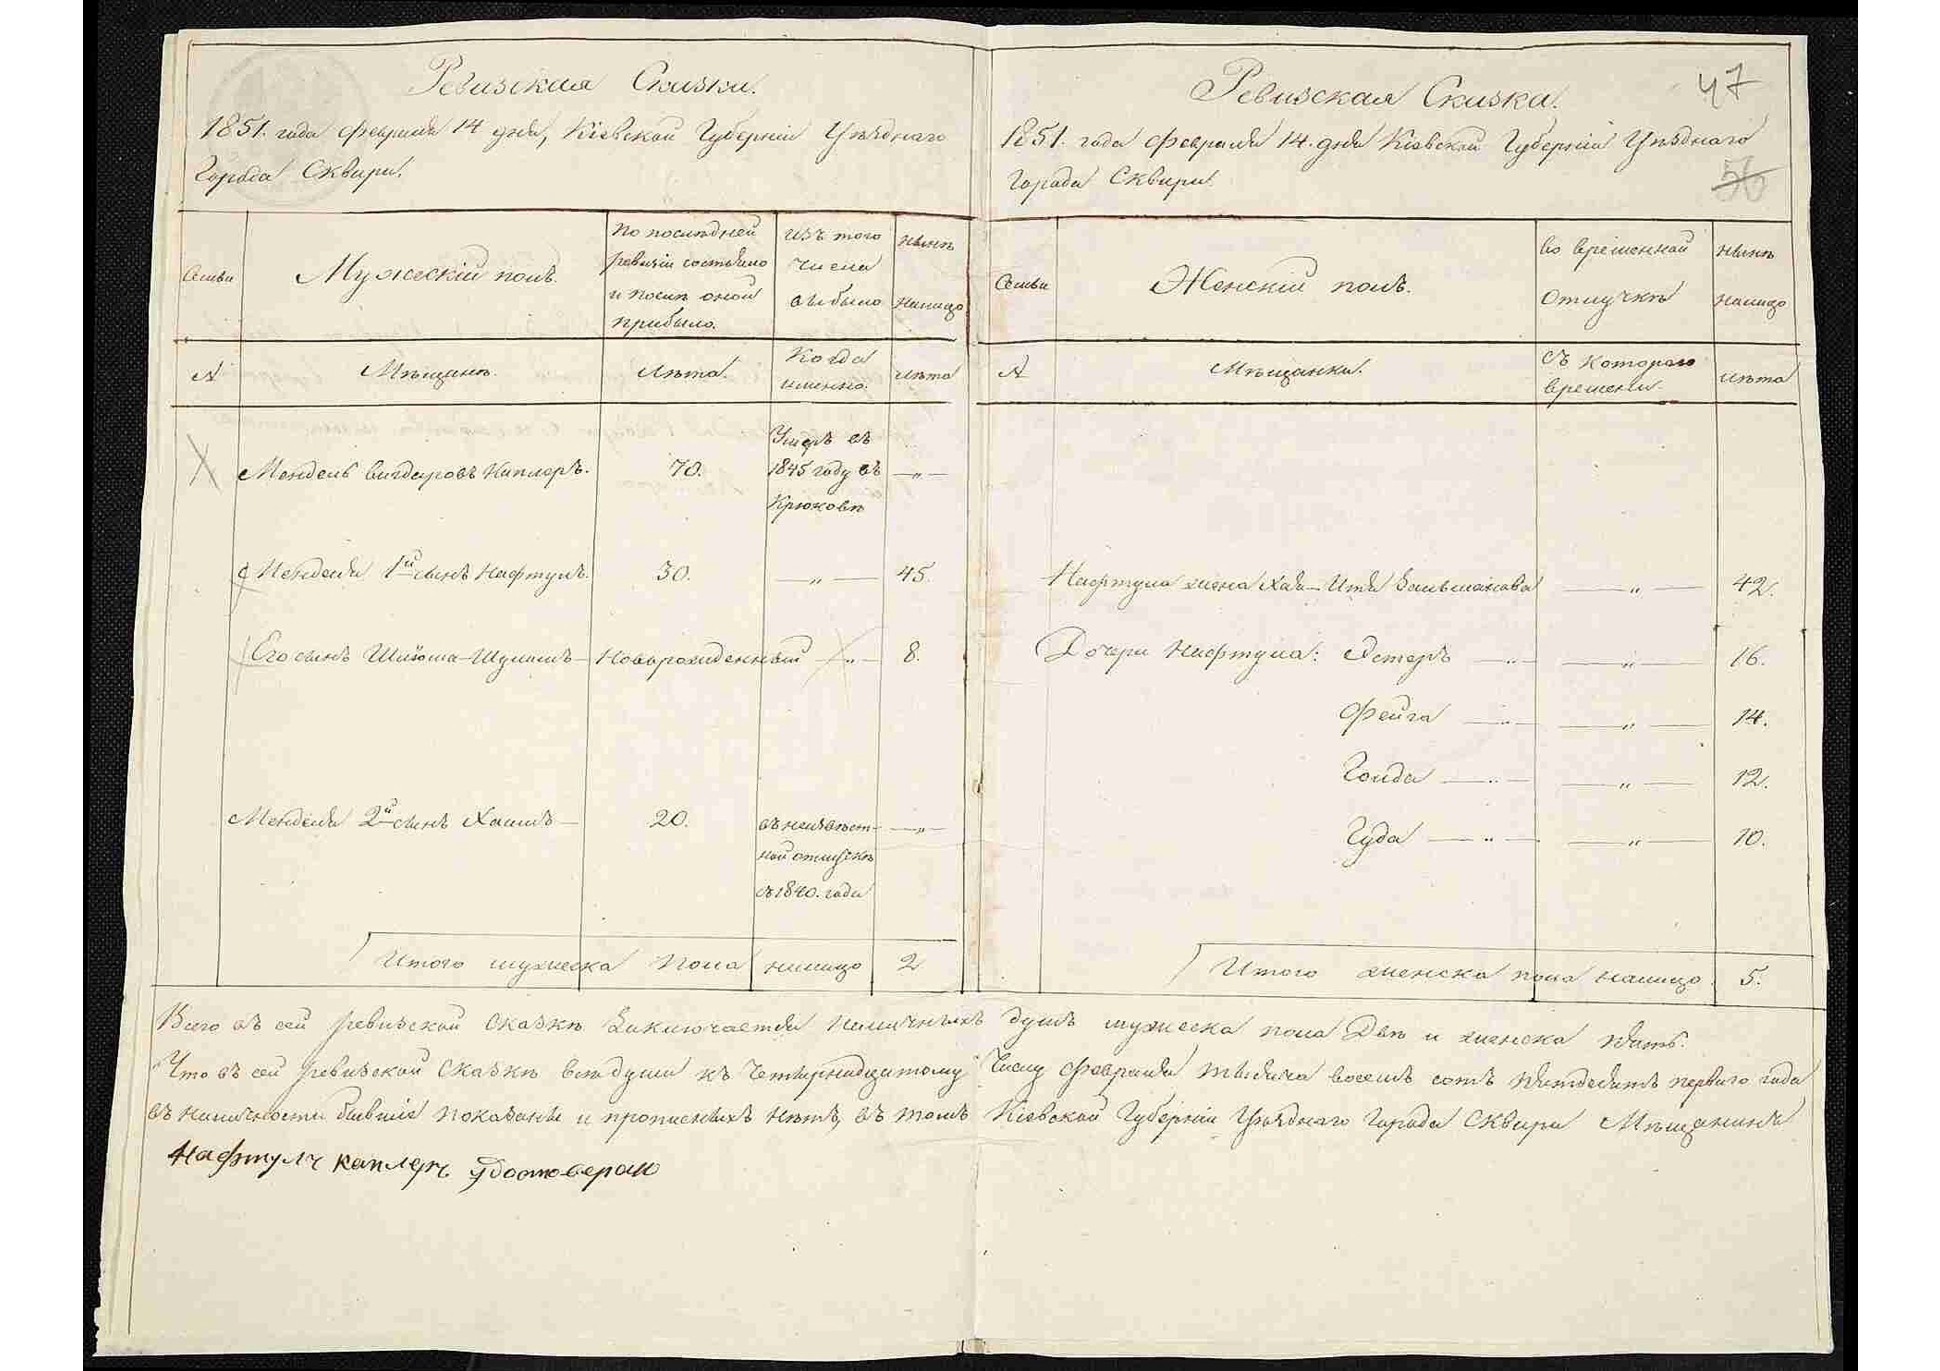 Ревизская Сказка.
1851. года февраля 14 дня, Кіевской Губерніи Уѣзднаго
Города Сквири.
Семьи
Мужескій полъ.
По послѣдней
ревизіи состояло
и послѣ оной
прибыло.
изъ того
числа
выбыло
нынѣ
налицо
Мѣщанъ.
Лѣта.
Когда
именно.
лѣта
Мендель Вигдоровъ Каплеръ.
70.
Умеръ въ
1845 году въ
Крюковѣ
— „ —
Менделя 1й сынъ Нафтулъ.
30.
— „ —
45.
Его сынъ Шлёма-Шулимъ —
Новорожденный
— „ —
8.
Менделя 2й сынъ Хаимъ —
20.
въ неизвѣст-
ной отлучкѣ
съ 1840. года
— „ —
Итого мужеска пола налицо 2
Ревизская Сказка.
47
56
1851. года февраля 14. дня Кіевской Губерніи Уѣзднаго
Города Сквири.
Семьи
Женскій полъ.
во временной
отлучкѣ
нынѣ
налицо
Мѣщанки.
съ котораго
времени.
лѣта
Нафтула жена Хая-Итя Зельманова
— „ —
42.
Дочери Нафтула: Эстеръ — „ —
— „ —
16.
Фейга — „ —
— „ —
14.
Голда — „ —
— „ —
12.
Гуда — „ —
— „ —
10.
Итого женска пола налицо 5.
Всего въ сей ревизской сказкѣ заключается наличныхъ душъ мужеска пола Двѣ и женска пять.
Что въ сей ревизской сказкѣ всѣ души къ Четырнадцатому Числу февраля тысяча восемь сотъ пятьдесятъ перваго года
въ наличности бывшіе показаны и прописныхъ нѣтъ, въ томъ Кіевской Губерніи Уѣзднаго Города Сквири Мѣщанинъ
Нафтулъ каплеръ удостоверяю